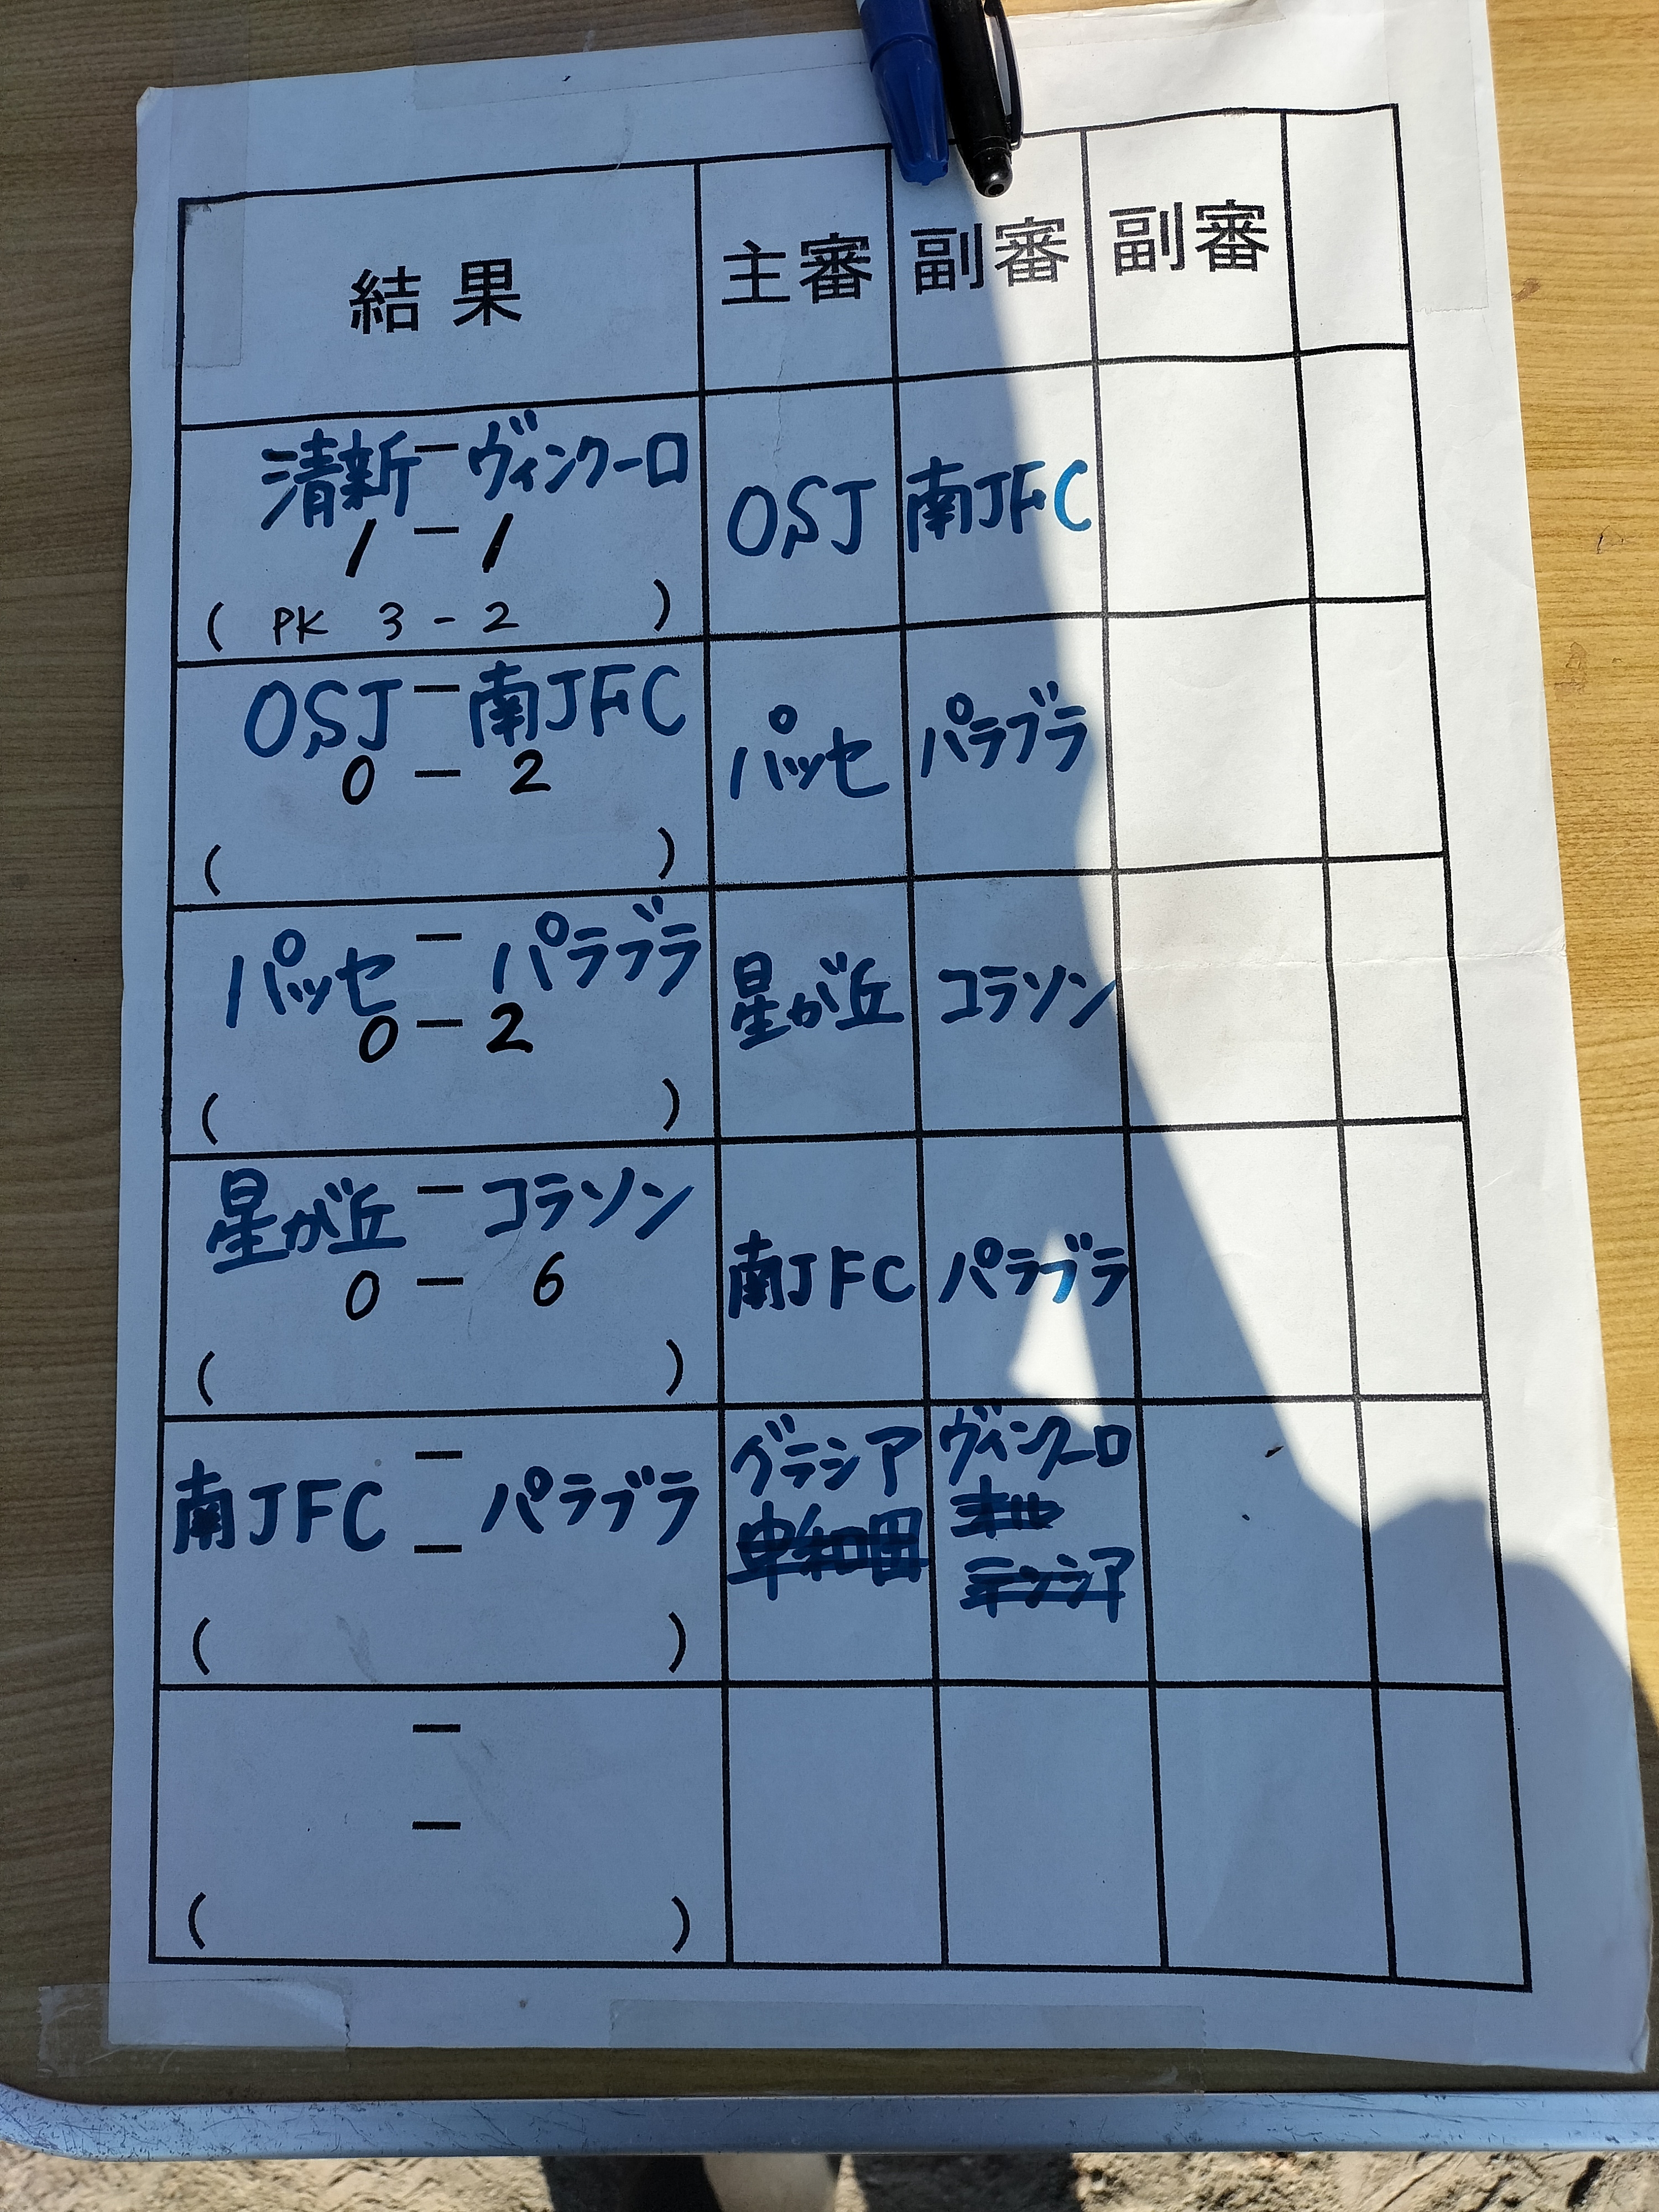 結果 主審 副審 副審
清新 - ヴィンクーロ OSJ 南JFC
1 - 1
( PK 3 - 2 )
OSJ - 南JFC パッセ パラブラ
0 - 2
( )
パッセ - パラブラ 星が丘 コラソン
0 - 2
( )
星が丘 - コラソン 南JFC パラブラ
0 - 6
( )
南JFC - パラブラ グラシア ヴィンクーロ
-
( )
-
-
( )